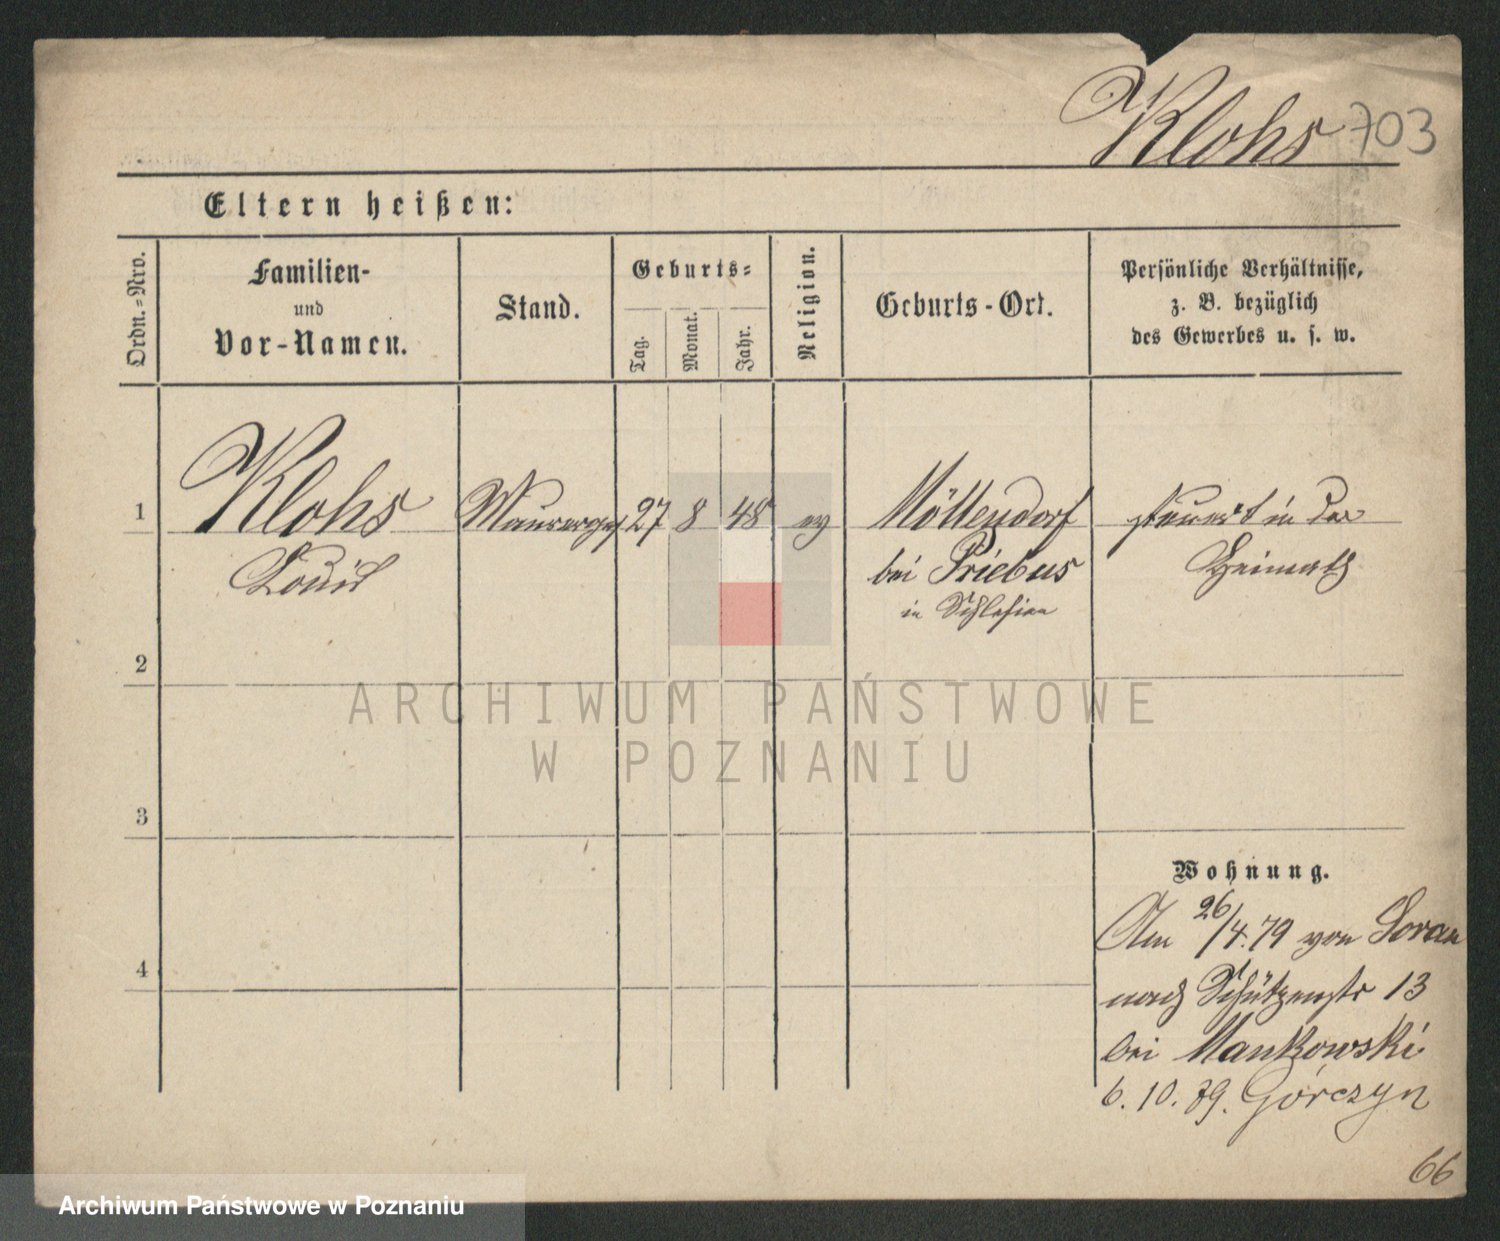 Klohs 703
Eltern heißen:
Ordn.-Nro.
Familien-
und
Vor-Namen.
Stand.
Geburts-
Tag.
Monat.
Jahr.
Religion.
Geburts-Ort.
Persönliche Verhältnisse,
z. B. bezüglich
des Gewerbes u. s. w.
1 Klohs Maurerges 27 8 48 ev Möllendorf steuert in der
Louis bei Priebus Heimath
in Schlesien
2
ARCHIWUM PAŃSTWOWE
W POZNANIU
3
Wohnung.
Am 26/4.79 von Soran
4
nach Schützenstr 13
bei Mankowski
6.10.79. Górczyn
66
Archiwum Państwowe w Poznaniu